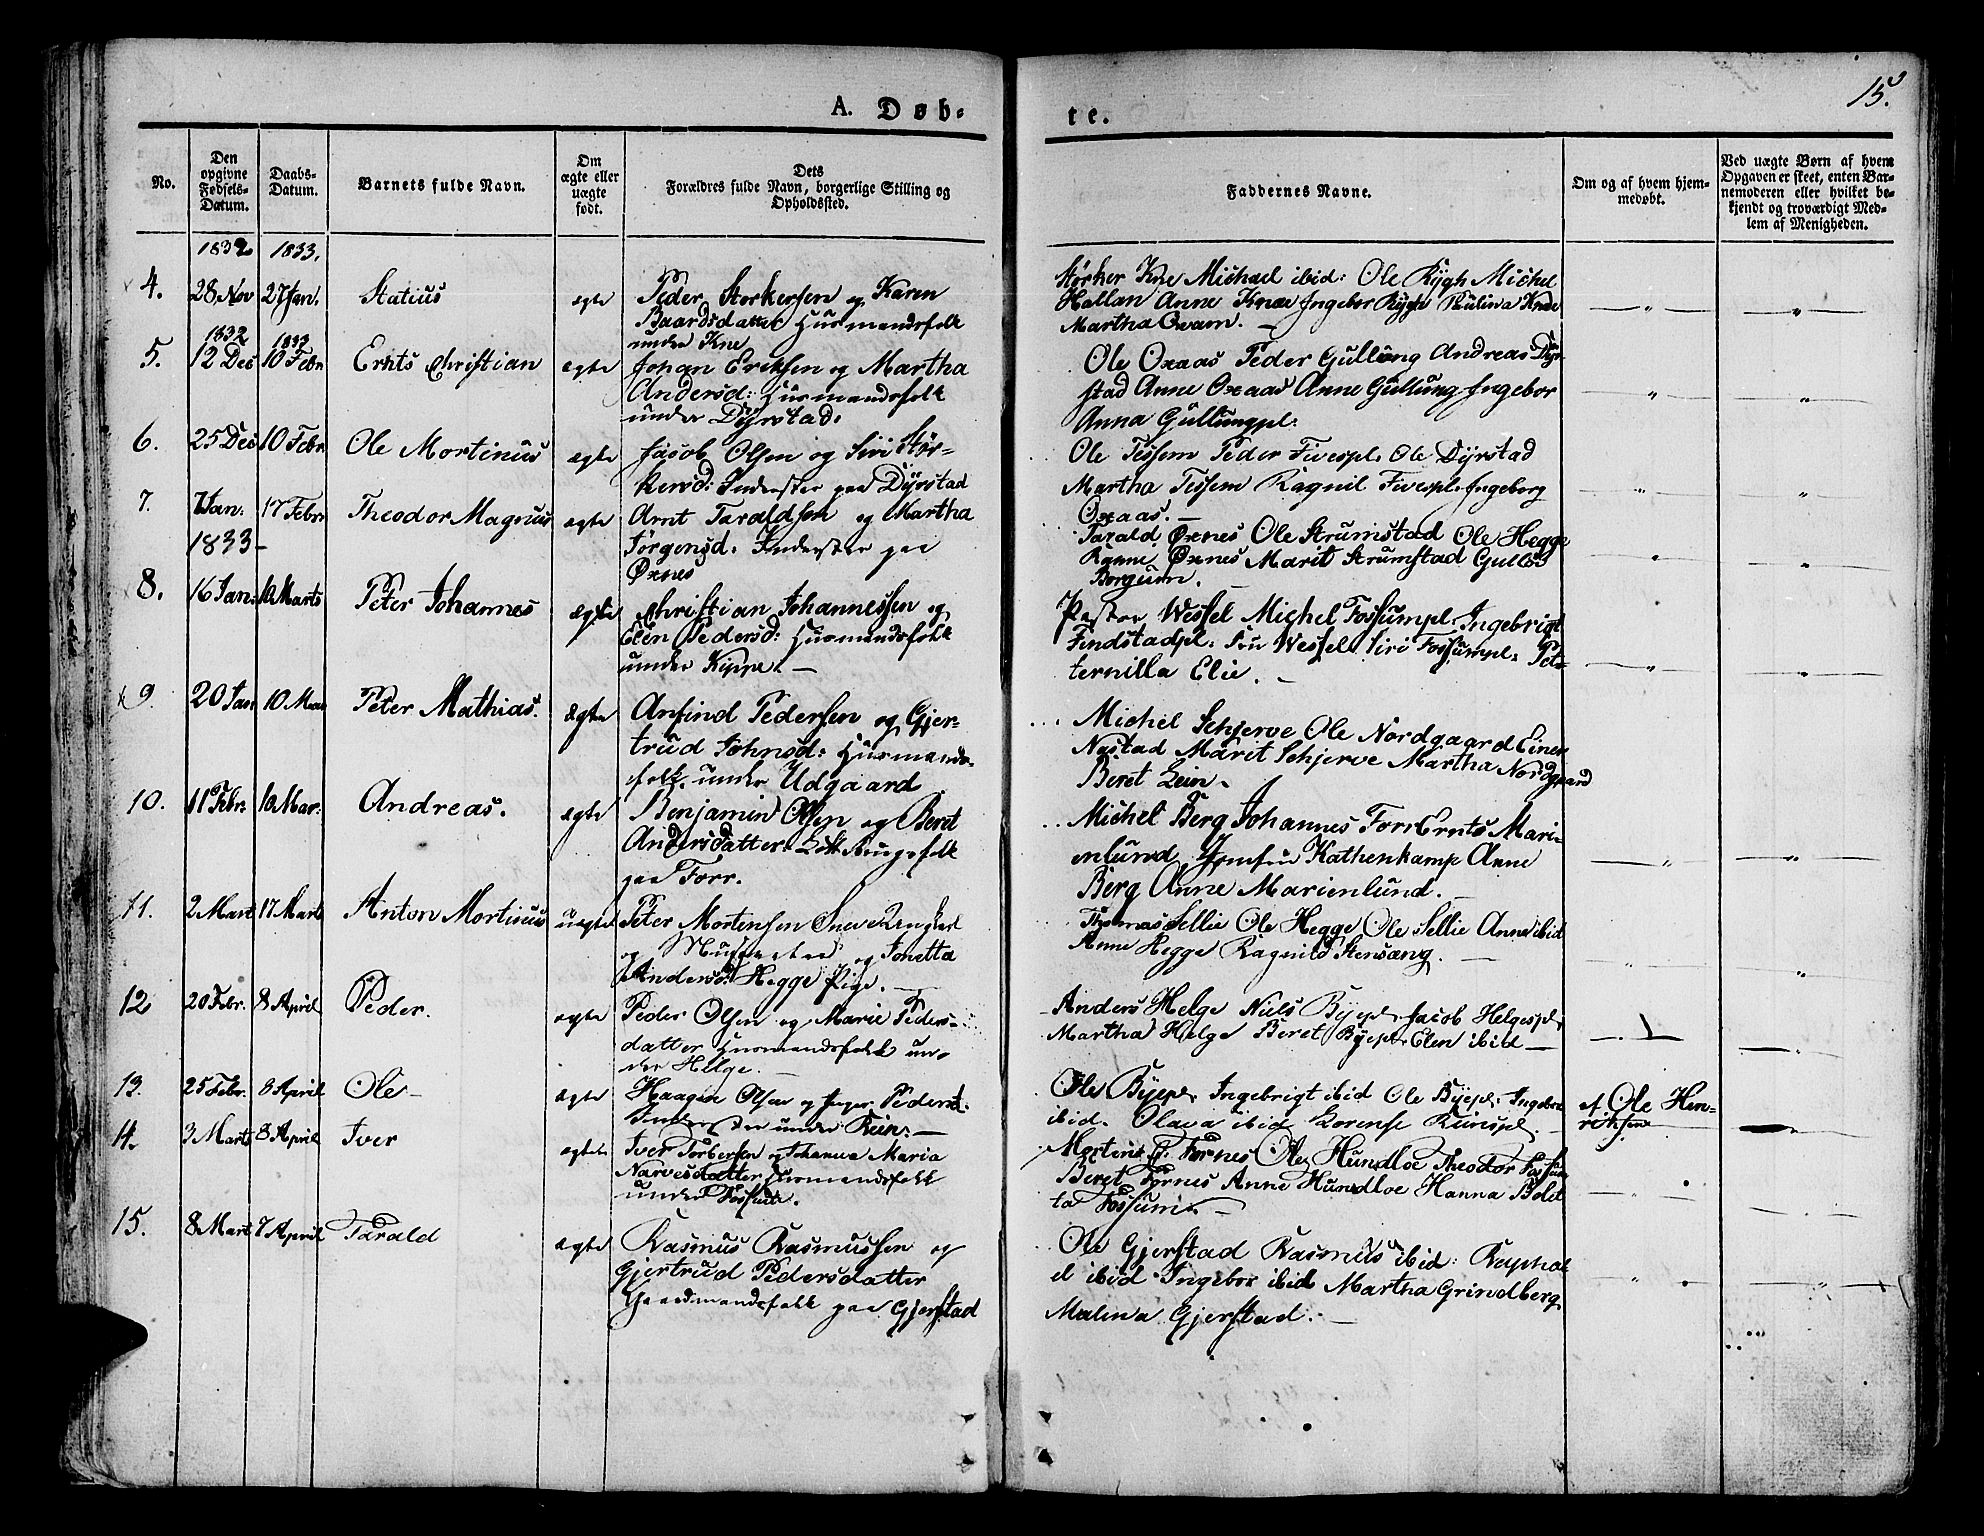 15.
A. Døb-
te.
No.
Den opgivne Fødsels-Datum.
Daabs-Datum.
Barnets fulde Navn.
Om ægte eller uægte født.
Dets Forældres fulde Navn, borgerlige Stilling og Opholdssted.
Faddernes Navne.
Om og af hvem hjem-medøbt.
Ved uægte Børn af hvem Opgaven er skeet, enten Bar-nemoderen eller hvilket be-kjendt og troværdigt Med-lem af Menigheden.
1832 1833.
4. 28 Nov 27 Jan. Statius ægte Peder Storkersen og Karen
Baardsdatter Huusmandsfolk
under Kne
Størker Kne Michael ibid: Ole Rygh Michel
Hallan Anne Knæ Ingebor Rygh Thulina Knæ
Martha Qvam. —
1832 1833
5. 12 Dec 10 Febr Ernts Christian ægte Johan Eriksen og Martha
Andersd: Huusmandsfolk
under Dyrstad.
Ole Oxaas Peder Gullung Andreas Dyr-
stad Anne Oxaas Anne Gullung Ingebor
Anna Gullungpl.
6. 25 Dec 10 Febr Ole Mortinus ægte Jacob Olsen og Siri Stør-
kersd: Inderster paa Dyrstad
Ole Tessem Peder Fivespl. Ole Dyrstad
Martha Tessem Ragnil Fivespl. Ingeborg
Oxaas. —
7. 7 Jan. 17 Febr Theodor Magnus ægte Arnt Taraldsen og Martha
1833 —
Jørgensd: Inderster paa
Øxnes
Tarald Øxnes Ole Strumstad Ole Hegge
Ranne Øxnes Marit Strumstad Gulløs
Borgum.
8. 16 Jan: 10 Marts Peter Johannes ægte Christian Johannessen og
Elen Pedersd: Huusmandsfolk
under Kippe. —
Pastor Wessel Michel Fossumpl. Ingebrigt
Findstadpl. Fru Wessel Siri Fossumpl. Pet-
ternilla Elie. —
9. 20 Jan 10 Mar Peter Mathias. Ægte Anfind Pedersen og Gjer-
trud Johnsd: Huusmands-
folk under Udgaard
Michel Schjerve Ole Nordgaard Einer
Nøstad Maret Schjerve Martha Nordgaard
Beret Lein.
10. 11 Febr. 10 Mar: Andreas. ægte Benjamin Olsen og Beret
Andersdatter
paa Forr.
Michel Berg Johannes Forr Ernts Mari-
enlund Jomfru Kathenkamp Anne
Berg Anne Marienlund. —
11. 2 Mart 17 Mart Anton Mortinus uægte Peter Mortensen
og og Jonetta
Andersd: Hegge Pige. —
Thomas Sellie Ole Hegge Ole Sellie Anne ibid
Anne Hegge Ragnild Stensang. —
12 20 Febr. 8 April Peder. ægte Peder Olsen og Marie Peders-
datter Huusmandsfolk un-
der Helge. —
Anders Helge Niels Byepl. Jacob Helgespl.
Martha Helge Beret Byepl. Elen ibid —
13. 25 Febr. 8 April Ole — ægte Haagen Olsen og Inger Pedersd.
Inderster under Rein. —
Ole Byepl. Ingebrigt ibid Ole Byepl. Ingebor
ibid. Olava ibid Lorense Reinspl. —
af Ole Hen-
riksen
14. 3 Marts 8 April Iver ægte Iver Torbersen og Johanna Maria
Narvesdatter Huusmandsfolk
under Fossum.
Mortinus P. Fornes Ole Hundloe Theodor Fossum
Beret Fornes Anne Hundloe Hanna Bolet
ta Fossum. —
15. 8 Mart 7 April Tarald ægte Rasmus Rasmussen og
Gjertrud Pedersdatter
Gaardmandsfolk paa Gjerstad
Ole Gjerstad Rasmus ibid: Raphae
l ibid Ingebor ibid Martha Grindberg
Malina Gjerstad. —